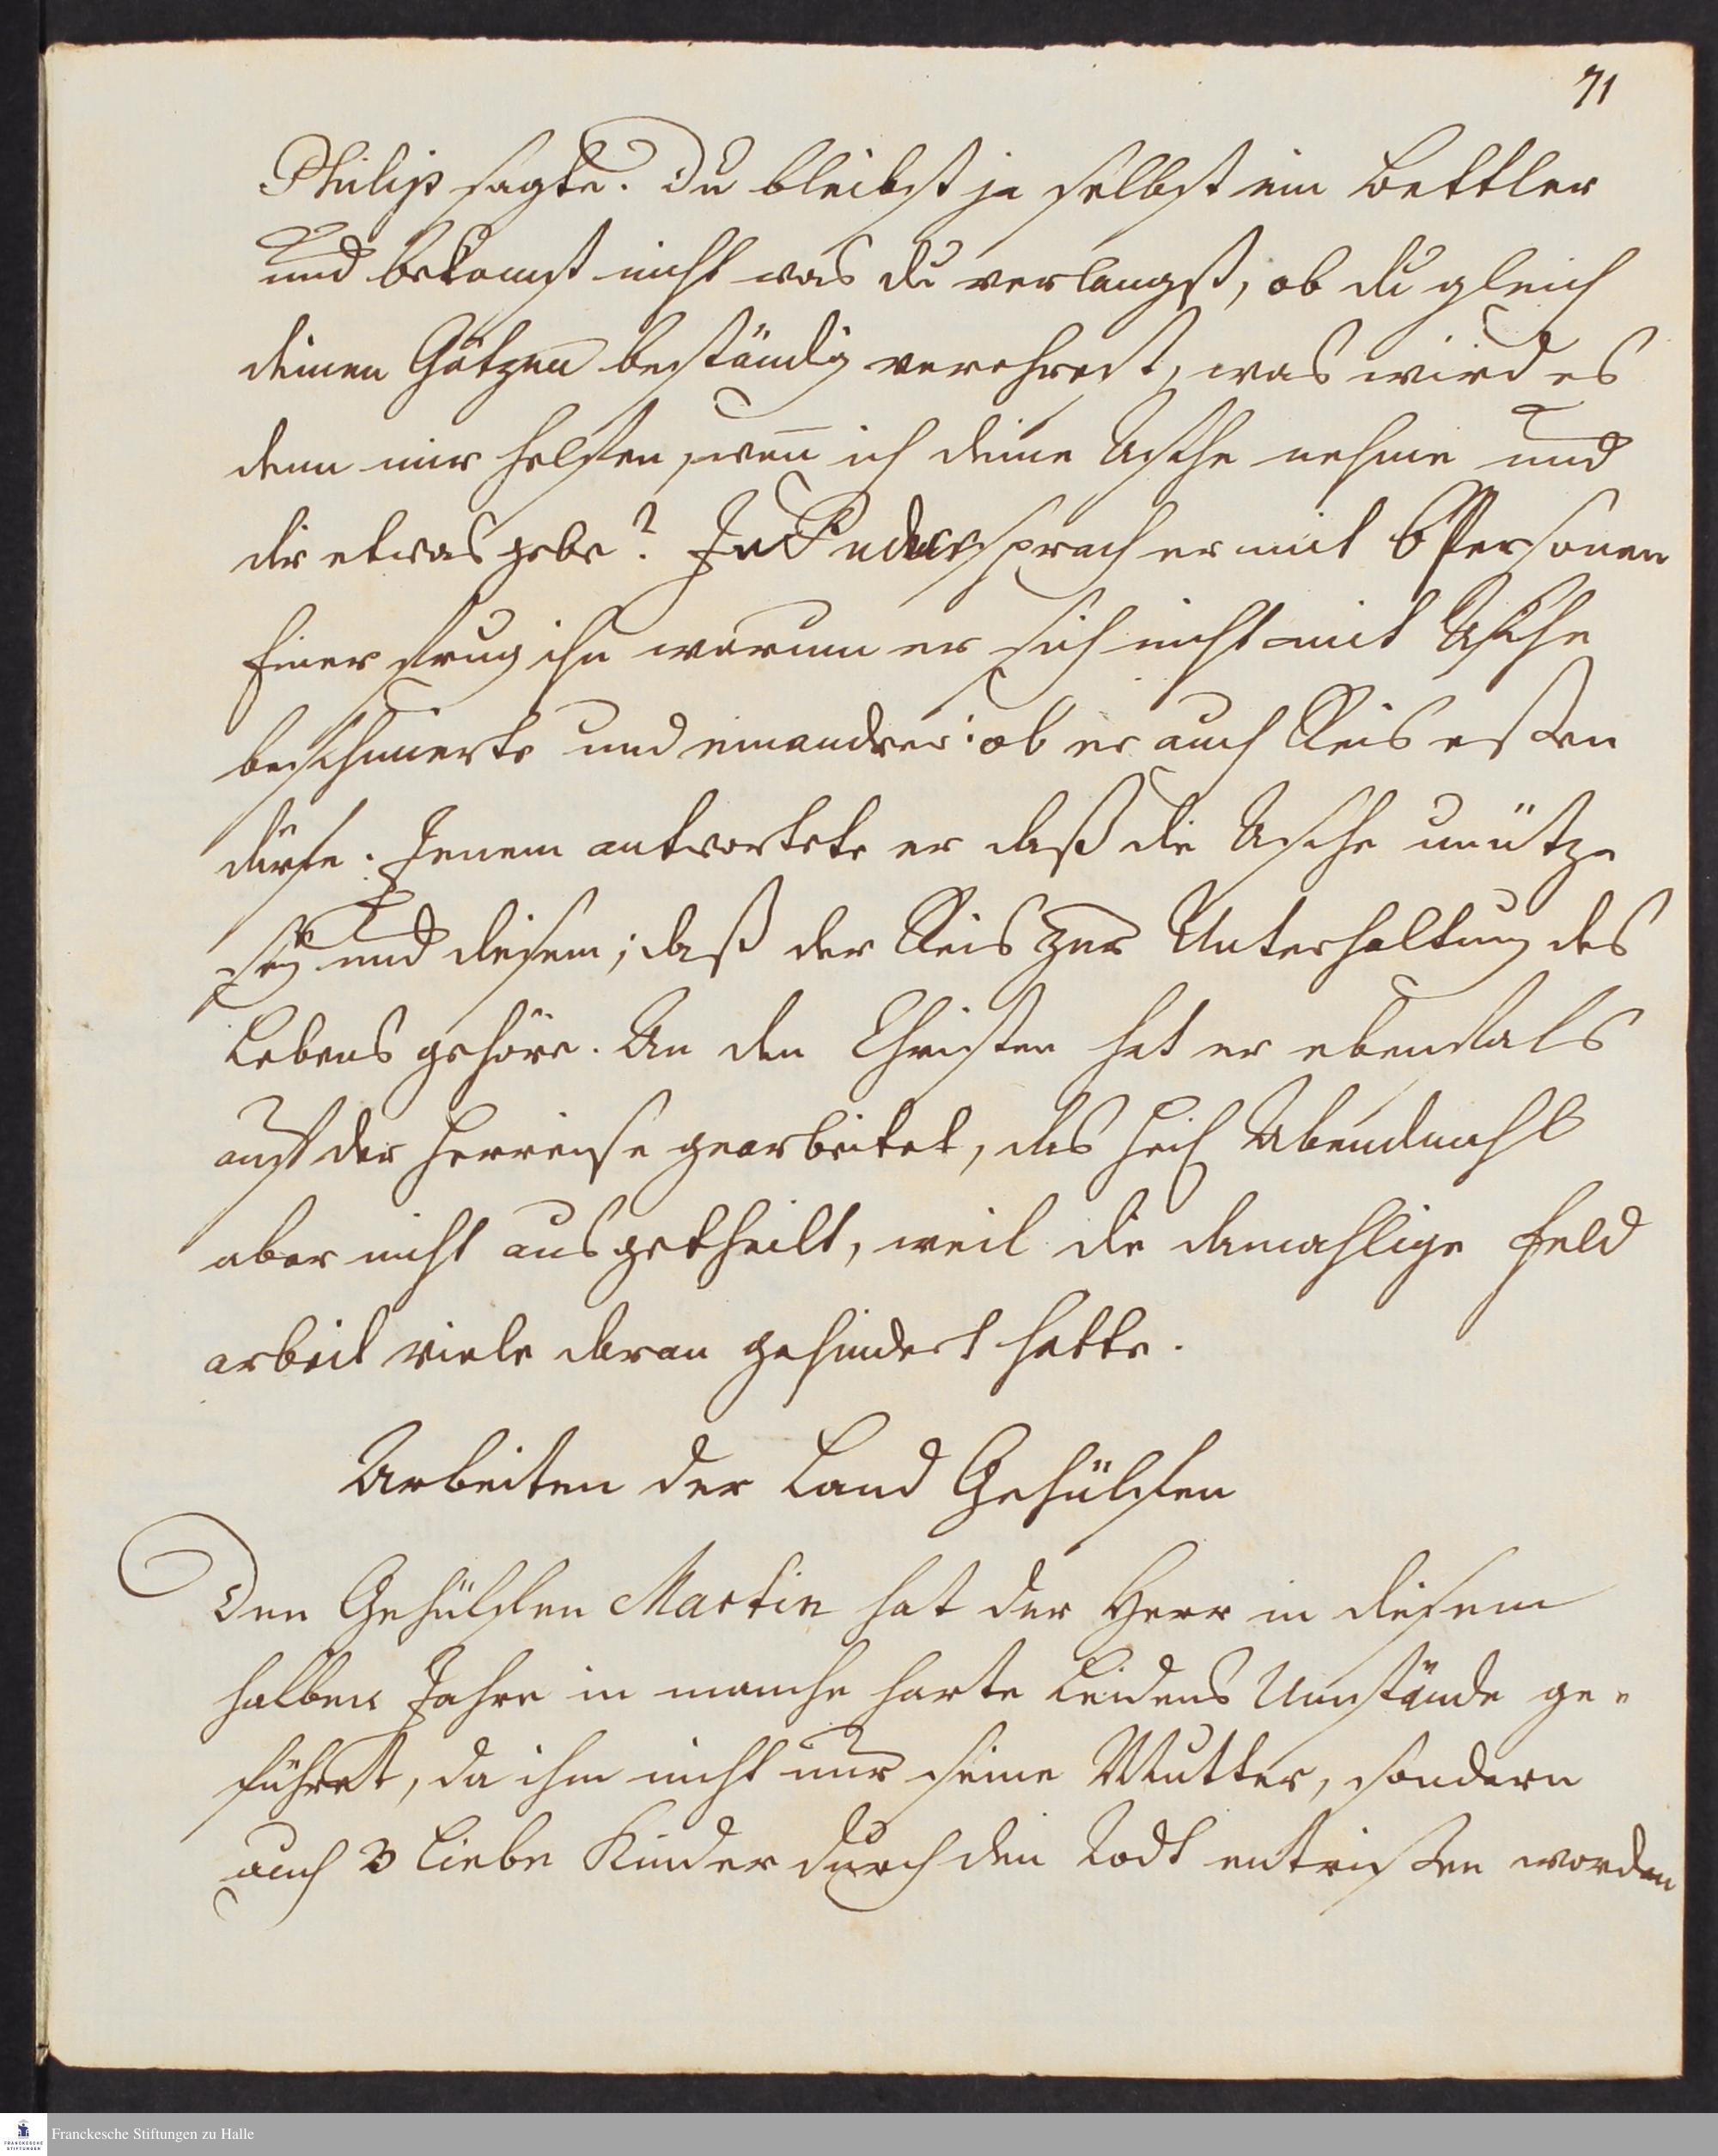 71
Philip sagte. Du bleibst ja selbst ein Bettler
und bekomst nicht was du verlangst, ob du gleich
deinen Götzen beständig verehrest, was wird es
denn mir helfen, weñ ich deine Asche nehme und
dir etwas gebe? In Pudur sprach er mit 6 Personen
Einer frug ihn warum er sich nicht mit Asche
beschmierte und ein andrer: ob er auch Reis essen
dürfe. Jenem antwortete er daß die Asche unütze
sey und diesem; daß der Reis zur Unterhaltung des
Lebens gehöre. An den Christen hat er ebenfals
auf der Herreise gearbeitet, das heil Abendmahl
aber nicht ausgetheilt, weil die damahlige Feld
arbeit viele daran gehindert hatte.
Arbeiten der Land Gehülfen
Den Gehülfen Martin hat der Herr in diesem
halben Jahre in manche harte Leidens Umstände ge-
führet, da ihm nicht nur seine Mutter, sondern
auch 3 liebe Kinder durch den Todt entrissen worden
Franckesche Stiftungen zu Halle
FRANCKESCHE
STIFTUNGEN